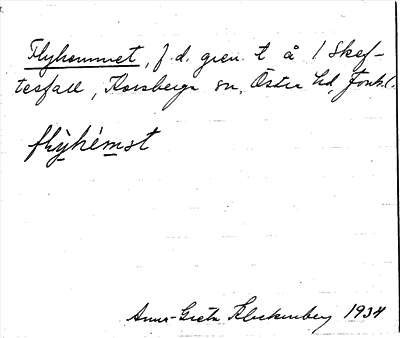 Flyhemmet, f.d. gren. t å 1 Skef-
tesfall, Korsberga sn, Östra hd, Jönk.l.
flỳhém̲st
Anna-Greta Klockenberg 1934